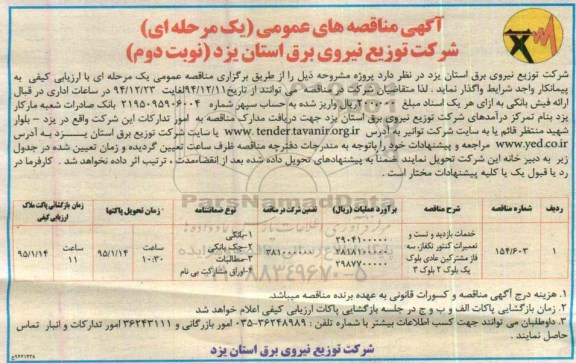 آگهی مناقصه های عمومی (یک مرحله ای)
شرکت توزیع نیروی برق استان یزد (نوبت دوم)
شرکت توزیع نیروی برق استان یزد در نظر دارد پروژه مشروحه ذیل را از طریق برگزاری مناقصه عمومی یک مرحله ای با ارزیابی کیفی به
پیمانکار واجد شرایط واگذار نماید . لذا متقاضیان شرکت در مناقصه می توانند از تاریخ ۹۴/۱۲/۱۱ لغایت ۹۴/۱۲/۲۳ در ساعات اداری در قبال
ارائه فیش بانکی به ازای هر یک اسناد مبلغ ریال واریز شده به حساب سپهر شماره ۰۲۱۹۵۰۹۵۹۶۰۰۴ بانک صادرات شعبه مارکار
یزد بنام تمرکز درآمدهای شرکت توزیع نیروی برق استان یزد جهت دریافت مدارک مناقصه به امور تدارکات این شرکت واقع در یزد - بلوار
شهید منتظر قائم یا به سایت شرکت توانیر به آدرس www.tender.tavanir.org.ir یا سایت شرکت توزیع برق استان یزد به آدرس
www.yed.co.ir مراجعه و پیشنهادات خود را باتوجه به مندرجات دفترچه مناقصه ظرف ساعت تعیین گردیده و زمان تعیین شده در جدول
زیر به دبیر خانه این شرکت تحویل نمایند ضمناً به پیشنهادهای تحویل داده شده بعد از انقضاءمدت ، ترتیب اثر داده نخواهد شد . کارفرما در
رد یا قبول یک یا کلیه پیشنهادات مختار است .
ردیف شماره مناقصه شرح مناقصه برآورد عملیات (ریال) تضمین شرکت در مناقصه نوع ضمانتنامه زمان تحویل پاکتها زمان بازگشائی پاکت ملاک ارزیابی کیفی
۱ ۱۵۴/۶۰۳ خدمات بازدید و تست و تعمیرات کنتور تکفاز، سه فاز مشترکین عادی بلوک یک بلوک ۲ بلوک ۳
۱-بانکی
۲-چک بانکی
۳-مطالبات
۴-اوراق مشارکت بی نام
۹۵/۱/۱۴ ساعت ۱۰:۳۰
۹۵/۱/۱۴ ساعت ۱۱
۱. هزینه درج آگهی مناقصه و کسورات قانونی به عهده برنده مناقصه میباشد.
۲. زمان بازگشایی پاکات الف و ب و ج در جلسه بازگشایی پاکات ارزیابی کیفی اعلام خواهد شد
۳. داوطلبان می توانند جهت کسب اطلاعات بیشتر با شماره تلفن : ۳۶۲۴۸۹۸۹-۰۳۵ امور بازرگانی و ۳۶۲۴۳۱۱۱ امور تدارکات و انبار تماس
حاصل نمایند .
شرکت توزیع نیروی برق استان یزد